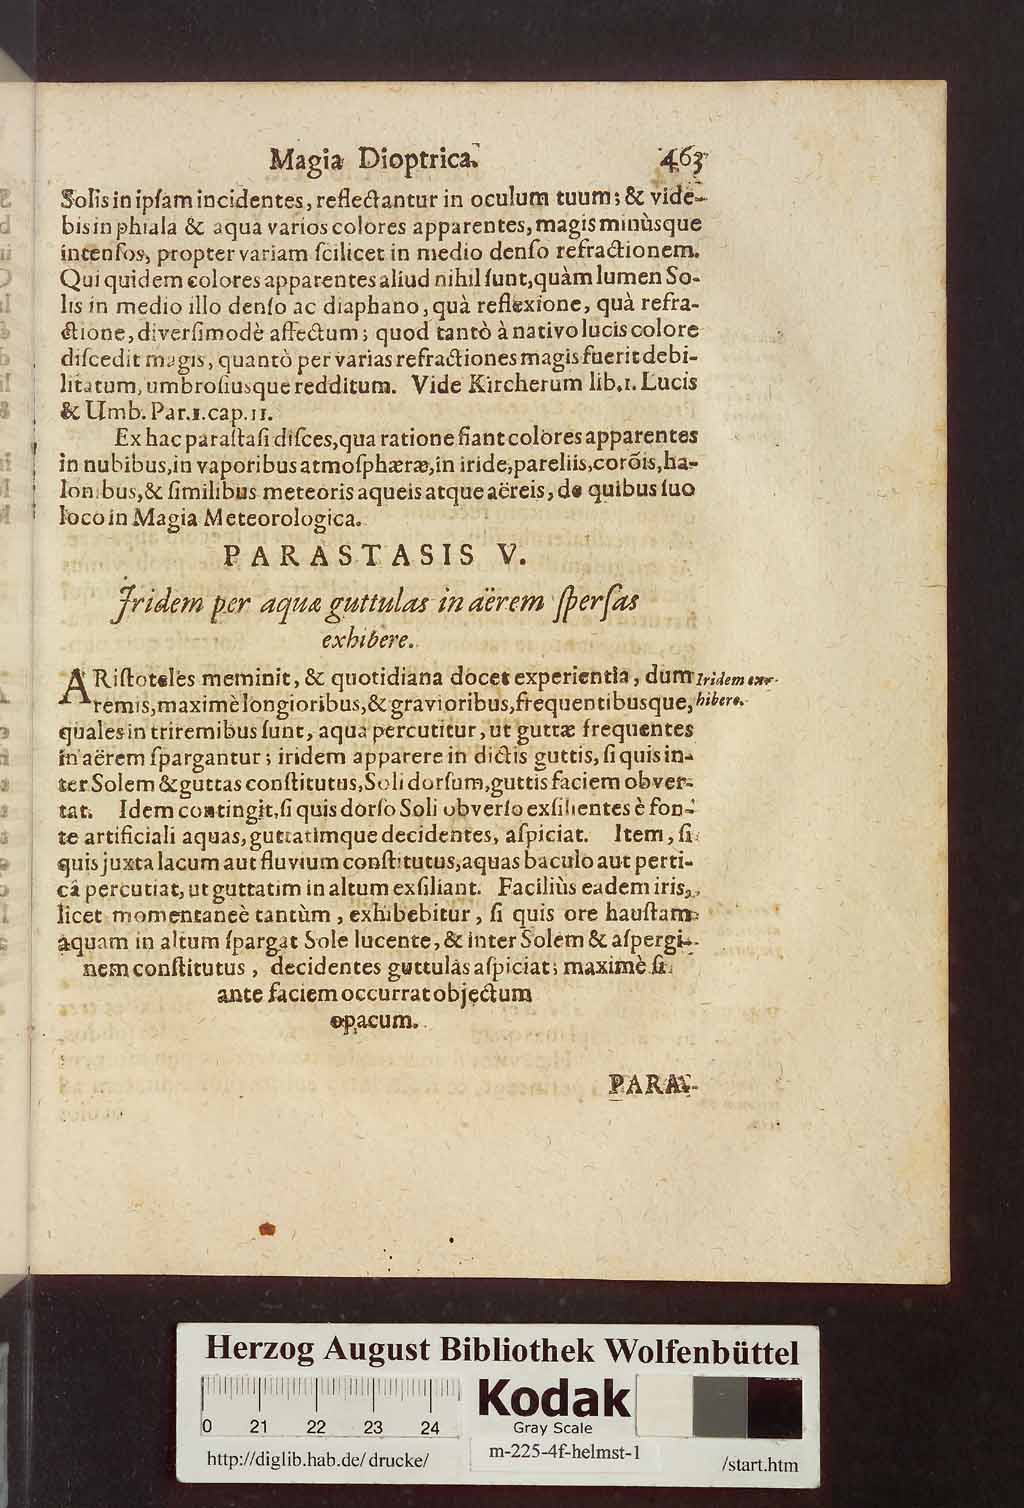 Magia Dioptrica. 463
Solis in ipſam incidentes, reflectantur in oculum tuum; & vide-
bis in phiala & aqua varios colores apparentes, magis minùsque
intenſos, propter variam ſcilicet in medio denſo refractionem.
Qui quidem colores apparentes aliud nihil ſunt, quàm lumen So-
lis in medio illo denſo ac diaphano, quà reflexione, quà refra-
ctione, diverſimodè affectum; quod tantò à nativo lucis colore
diſcedit magis, quantò per varias refractiones magis fuerit debi-
litatum, umbroſiusque redditum. Vide Kircherum lib.1. Lucis
& Umb. Par.1.cap.11.
Ex hac paraſtaſi diſces, qua ratione fiant colores apparentes
in nubibus, in vaporibus atmoſphæræ, in iride, pareliis, corõis, ha-
lonibus, & ſimilibus meteoris aqueis atque aëreis, de quibus ſuo
loco in Magia Meteorologica.
PARASTASIS V.
Iridem per aquæ guttulas in aërem ſperſas
exhibere.
ARiſtoteles meminit, & quotidiana docet experientia, dum
remis, maximè longioribus, & gravioribus, frequentibusque,
quales in triremibus ſunt, aqua percutitur, ut guttæ frequentes
in aërem ſpargantur; iridem apparere in dictis guttis, ſi quis in-
ter Solem & guttas conſtitutus, Soli dorſum, guttis faciem obver-
tat. Idem contingit, ſi quis dorſo Soli obverſo exſilientes è fon-
te artificiali aquas, guttatimque decidentes, aſpiciat. Item, ſi
quis juxta lacum aut fluvium conſtitutus, aquas baculo aut perti-
câ percutiat, ut guttatim in altum exſiliant. Faciliùs eadem iris,
licet momentaneè tantùm, exhibebitur, ſi quis ore hauſtam
aquam in altum ſpargat Sole lucente, & inter Solem & aſpergi-
nem conſtitutus, decidentes guttulas aſpiciat; maximè ſi
ante faciem occurrat objectum
opacum.
Iridem ex-
hibere.
PARA-
Herzog August Bibliothek Wolfenbüttel
0 21 22 23 24
Kodak
Gray Scale
http://diglib.hab.de/drucke/
m-225-4f-helmst-1
/start.htm